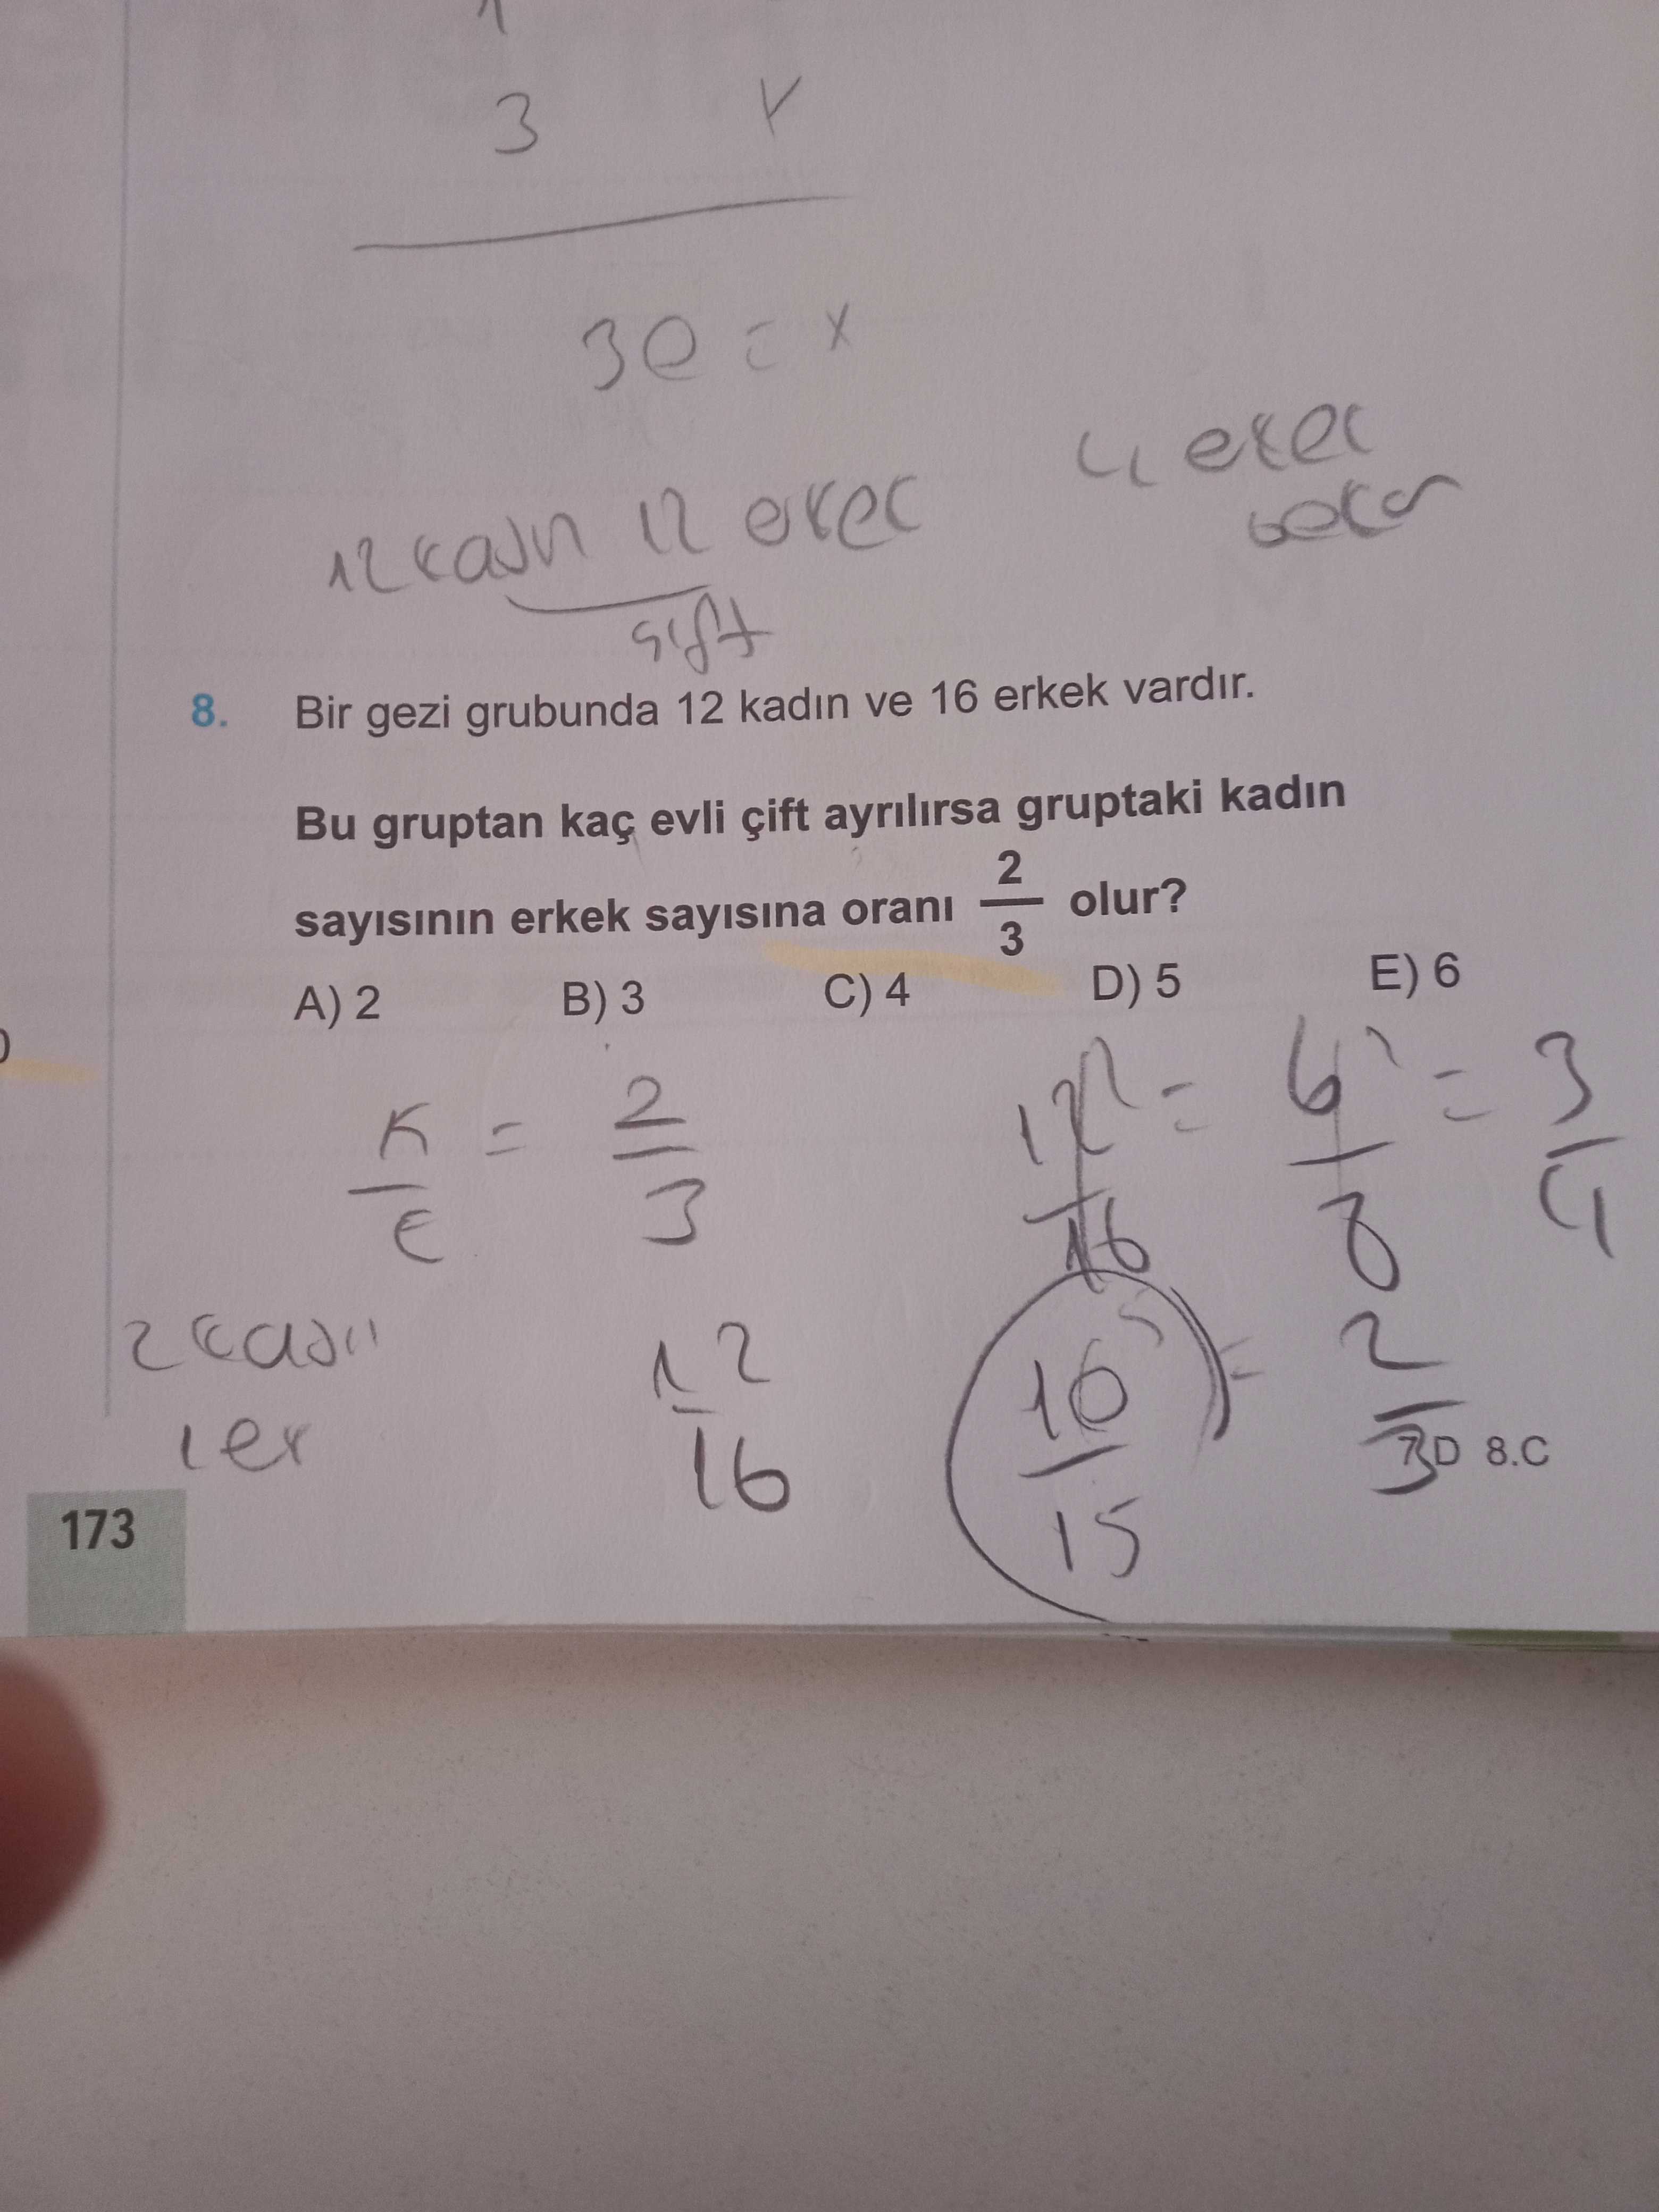 3
3e = x
4 erkek
bekar
12 kadın 12 erkek
çift
8. Bir gezi grubunda 12 kadın ve 16 erkek vardır.
Bu gruptan kaç evli çift ayrılırsa gruptaki kadın
sayısının erkek sayısına oranı 2/3 olur?
A) 2 B) 3 C) 4 D) 5 E) 6
K/E = 2/3
12/16 = 6/8 = 3/4
2 kadın
1 er
12/16
10/15 = 2/3
7.D 8.C
173